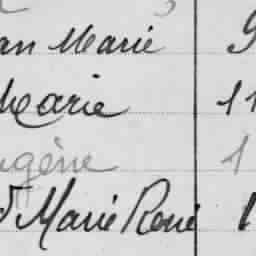 an Marie 9
Marie 11
ugène 1
d Marie René 1